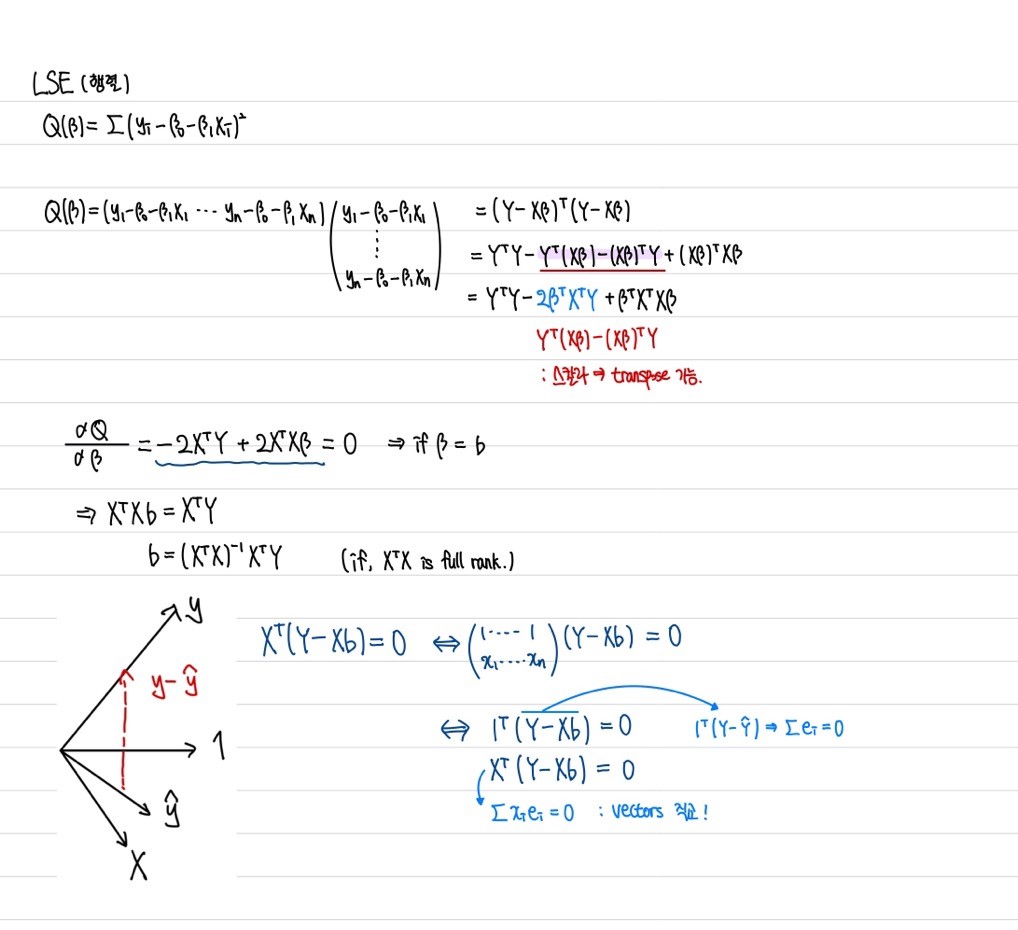 LSE (행렬)
Q(β) = Σ(yᵢ - β₀ - β₁xᵢ)²
Q(β) = (y₁-β₀-β₁x₁ ⋯ yₙ-β₀-β₁xₙ) ( y₁-β₀-β₁x₁ ⋮ yₙ-β₀-β₁xₙ ) = (Y-Xβ)ᵀ(Y-Xβ)
= YᵀY - Yᵀ(Xβ) - (Xβ)ᵀY + (Xβ)ᵀXβ
= YᵀY - 2βᵀXᵀY + βᵀXᵀXβ
Yᵀ(Xβ) - (Xβ)ᵀY
: 스칼라 ⇒ transpose 가능.
dQ/dβ = -2XᵀY + 2XᵀXβ = 0 ⇒ if β = b
⇒ XᵀXb = XᵀY
b = (XᵀX)⁻¹XᵀY (if, XᵀX is full rank.)
y
y-ŷ
1
ŷ
X
Xᵀ(Y-Xb) = 0 ⇔ ( 1 ---- 1 x₁ ---- xₙ ) (Y-Xb) = 0
⇔ 1ᵀ(Y-Xb) = 0 1ᵀ(Y-Ŷ) ⇒ Σeᵢ = 0
Xᵀ(Y-Xb) = 0
Σxᵢeᵢ = 0 : vectors 직교!